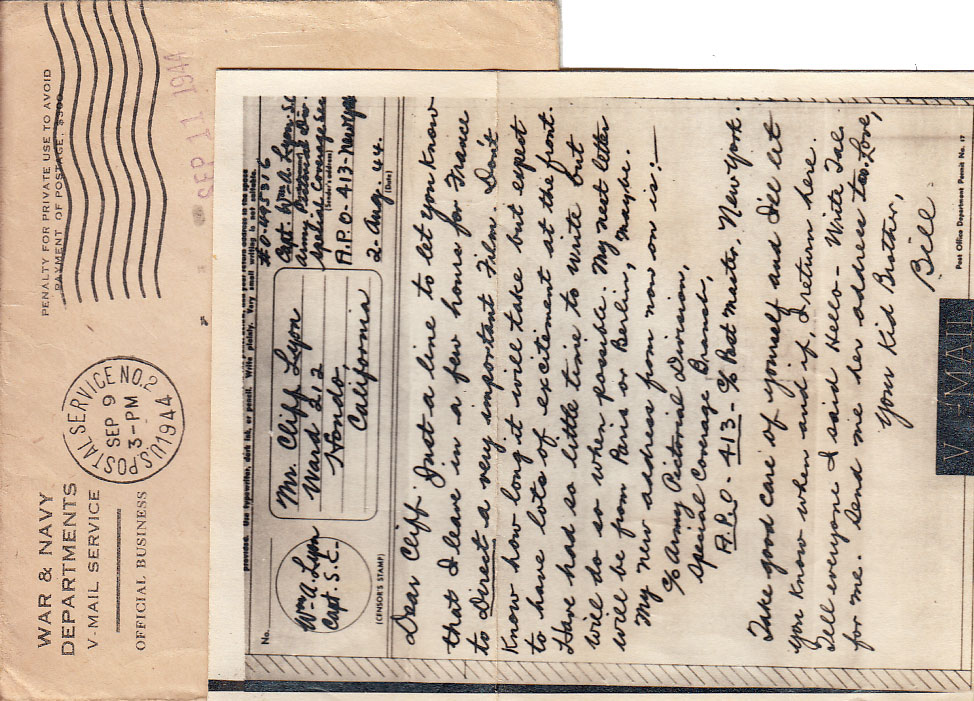 WAR & NAVY
DEPARTMENTS
V-MAIL SERVICE
OFFICIAL BUSINESS
U.S. POSTAL SERVICE NO. 2
SEP 9
3-PM
1944
PENALTY FOR PRIVATE USE TO AVOID
PAYMENT OF POSTAGE, $300
SEP 11 1944
provided. Use typewriter, dark ink, or pencil. Write plainly. Very small writing is not suitable.
No.
Wm A. Lyon
Capt. S.C.
(CENSOR'S STAMP)
Mr. Cliff Lyon
Ward 212
Hondo,
California
Capt. Wm. A. Lyon. S.C.
Army Pictorial Div.
Special Coverage Sec
(Sender's address)
A.P.O. 413- New York
2- Aug. 44.
(Date)
Dear Cliff. Just a line to let you know
that I leave in a few hours for France
to Direct a very important Film. Don't
Know how long it will take but expect
to have lots of excitement at the front.
Have had so little time to write but
will do so when possible. My next letter
will be from Paris or Berlin, Maybe.
My new address from now on is:—
c/o Army Pictorial Division,
Special Coverage Branch,
A.P.O - 413 - c/o Post Master, New York.
Take good care of yourself and I'll let
you know when and if, I return here.
Tell everyone I said Hello- Write Tali
for me. Send me her address too. Love,
Your Kid Brother,
Bill
V-MAIL
Post Office Department Permit No. 17